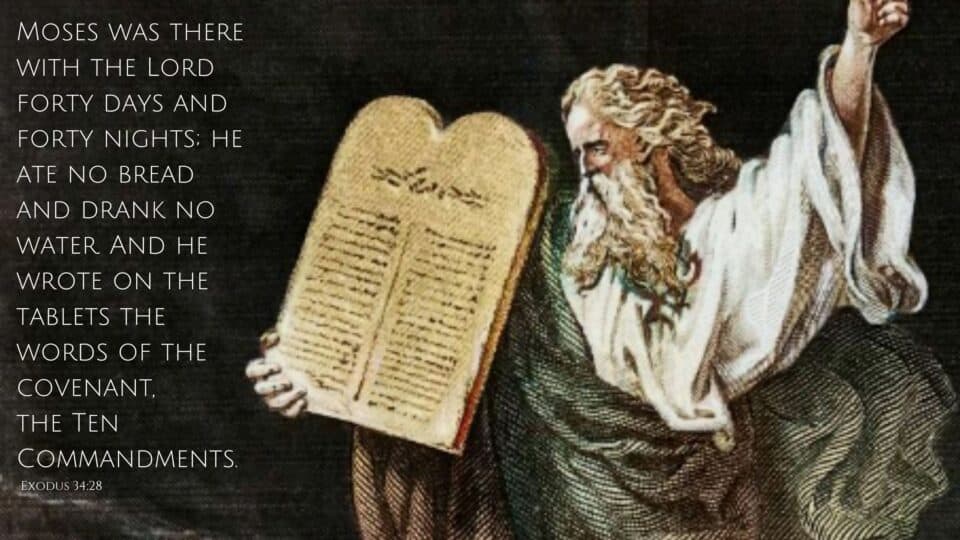 Moses was there
with the Lord
forty days and
forty nights; he
ate no bread
and drank no
water. And he
wrote on the
tablets the
words of the
covenant,
the Ten
Commandments.
Exodus 34:28